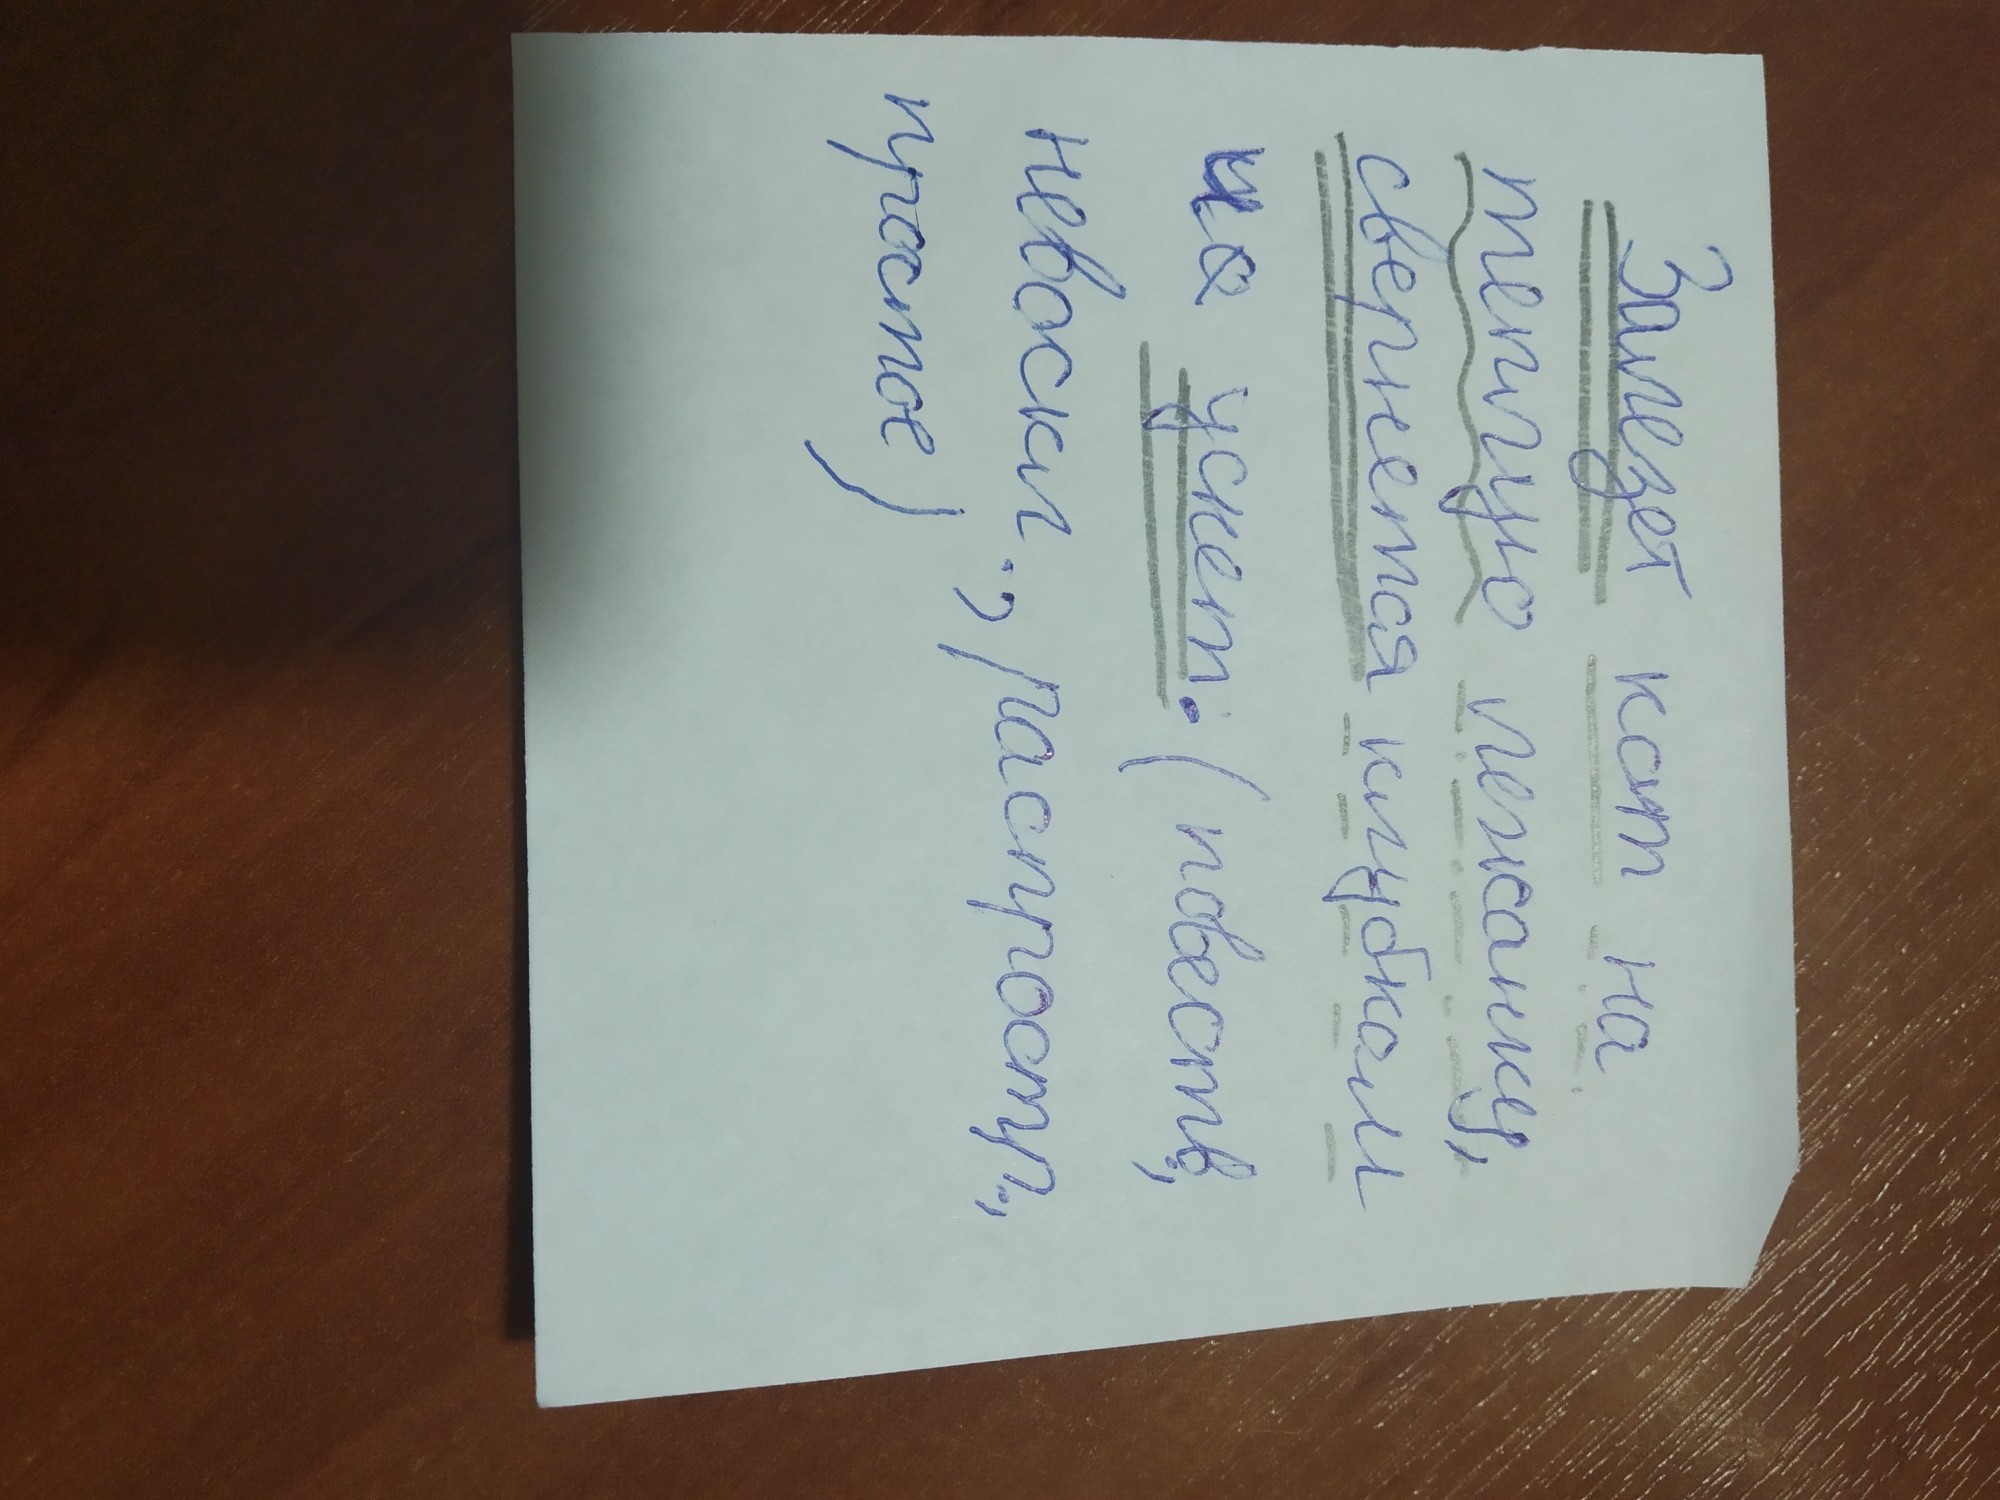 Залезет кот на
теплую лежанку,
свернется клубком
и уснет. (повеств.,
невоскл., распростр.,
простое)